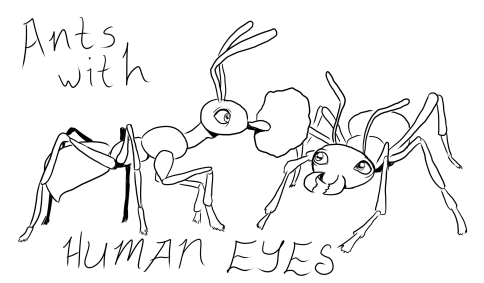 Ants
with
HUMAN EYES